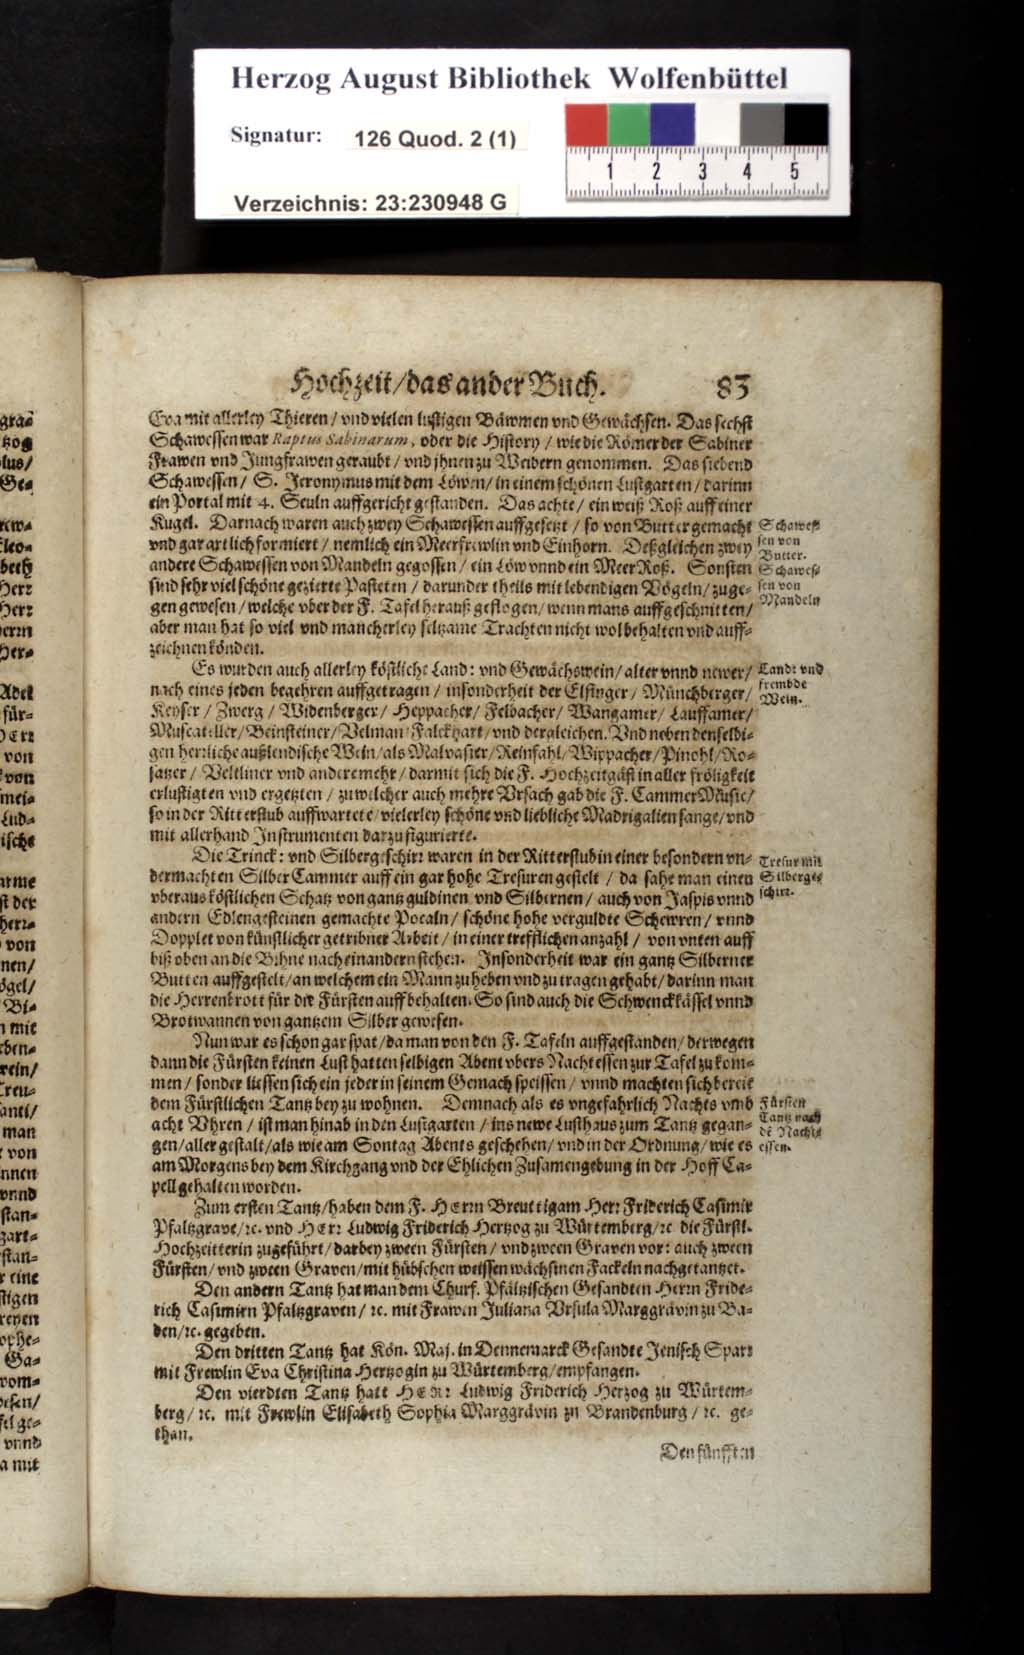 Herzog August Bibliothek Wolfenbüttel
Signatur: 126 Quod. 2 (1)
1 2 3 4 5
Verzeichnis: 23:230948 G
Hochzeit/das ander Buch. 83
Eva mit allerley Thieren/vnd vielen lustigen Bäwmen vnd Gewächsen. Das sechst
Schawessen war Raptus Sabinarum, oder die History/wie die Römer der Sabiner
Frawen vnd Jungfrawen geraubt/vnd jhnen zu Weibern genommen. Das siebend
Schawessen/S. Jeronymus mit dem Löwen/in einem schönen Lustgarten/darinn
ein Portal mit 4. Seuln auffgericht gestanden. Das achte/ein weiß Roß auff einer
Kugel. Darnach waren auch zwey Schawessen auffgesetzt/so von Butter gemacht
vnd gar artlich formiert/nemlich ein Meerfrewlin vnd Einhorn. Deßgleichen zwey
andere Schawessen von Mandeln gegossen/ein Löw vnnd ein MeerRoß. Sonsten
sind sehr viel schöne gezierte Pasteten/darunder theils mit lebendigen Vögeln/zuge-
gen gewesen/welche vber der F. Tafel herauß geflogen/wenn mans auffgeschnitten/
aber man hat so viel vnd mancherley seltzame Trachten nicht wol behalten vnd auff-
zeichnen könden.
Schawes-
sen von
Butter.
Schawes-
sen von
Mandeln
Es wurden auch allerley köstliche Land: vnd Gewächswein/alter vnnd newer/
nach eines jeden begehren auffgetragen/insonderheit der Elfinger/Münchberger/
Keyser/Zwerg/Widenberger/Heppacher/Felbacher/Wangamer/Lauffamer/
Muscateller/Beinsteiner/Velman/Falckhart/vnd dergleichen. Vnd neben denselbi-
gen herrliche außlendische Wein/als Malvasier/Reinfahl/Wippacher/Pinohl/Ro-
satzer/Veltliner vnd andere mehr/darmit sich die F. Hochzeitgäst in aller fröligkeit
erlustigten vnd ergetzten/zu welcher auch mehre Vrsach gab die F. CammerMusic/
so in der Ritterstub auffwartete/vielerley schöne vnd liebliche Madrigalien sange/vnd
mit allerhand Instrumenten darzu figurierte.
Land: vnd
frembde
Wein.
Die Trinck: vnd Silbergeschirr waren in der Ritterstub in einer besondern vn-
dermachten SilberCammer auff ein gar hohe Tresuren gestelt/da sahe man einen
vberaus köstlichen Schatz von gantz guldinen vnd Silbernen/auch von Jaspis vnnd
andern Edlengesteinen gemachte Pocaln/schöne hohe verguldte Schewren/vnnd
Dopplet von künstlicher getribner Arbeit/in einer trefflichen anzahl/von vnten auff
biß oben an die Bühne nach einandern stehen. Insonderheit war ein gantz Silberner
Butten auffgestelt/an welchem ein Mann zu heben vnd zu tragen gehabt/darinn man
die Herrenbrott für die Fürsten auff behalten. So sind auch die Schwenckkässel vnnd
Brotwannen von gantzem Silber gewesen.
Tresur mit
Silberge-
schirr.
Nun war es schon gar spat/da man von den F. Tafeln auffgestanden/derwegen
dann die Fürsten keinen Lust hatten selbigen Abent vbers Nachtessen zur Tafel zu kom-
men/sonder liessen sich ein jeder in seinem Gemach speissen/vnnd machten sich bereit
dem Fürstlichen Tantz bey zu wohnen. Demnach als es vngefahrlich Nachts vmb
acht Vhren/ist man hinab in den Lustgarten/ins newe Lusthaus zum Tantz gegan-
gen/aller gestalt/als wie am Sontag Abents geschehen/vnd in der Ordnung/wie es
am Morgens bey dem Kirchgang vnd der Ehlichen Zusamengebung in der Hoff Ca-
pell gehalten worden.
Fürsten
Tantz nach
dē Nacht-
essen.
Zum ersten Tantz/haben dem F. HErrn Breuttigam Herr Friderich Casimir
Pfaltzgrave/ꝛc. vnd HErr Ludwig Friderich Hertzog zu Würtemberg/ꝛc die Fürstl.
Hochzeitterin zugeführt/darbey zween Fürsten/vnd zween Graven vor: auch zween
Fürsten/vnd zween Graven/mit hübschen weissen wächsinen Fackeln nachgetantzet.
Den andern Tantz hat man dem Churf. Pfältzischen Gesandten Herrn Fride-
rich Casimirn Pfaltzgraven/ꝛc. mit Frawen Juliana Vrsula Marggrävin zu Ba-
den/ꝛc. gegeben.
Den dritten Tantz hat Kön. Maj. in Dennemarck Gesandte Jenisch Sparr
mit Frewlin Eva Christina Hertzogin zu Würtemberg/empfangen.
Den vierdten Tantz hatt HERr Ludwig Friderich Herzog zu Würtem-
berg/ꝛc. mit Frewlin Elisabeth Sophia Marggrävin zu Brandenburg/ꝛc. ge-
than.
Den fünfften